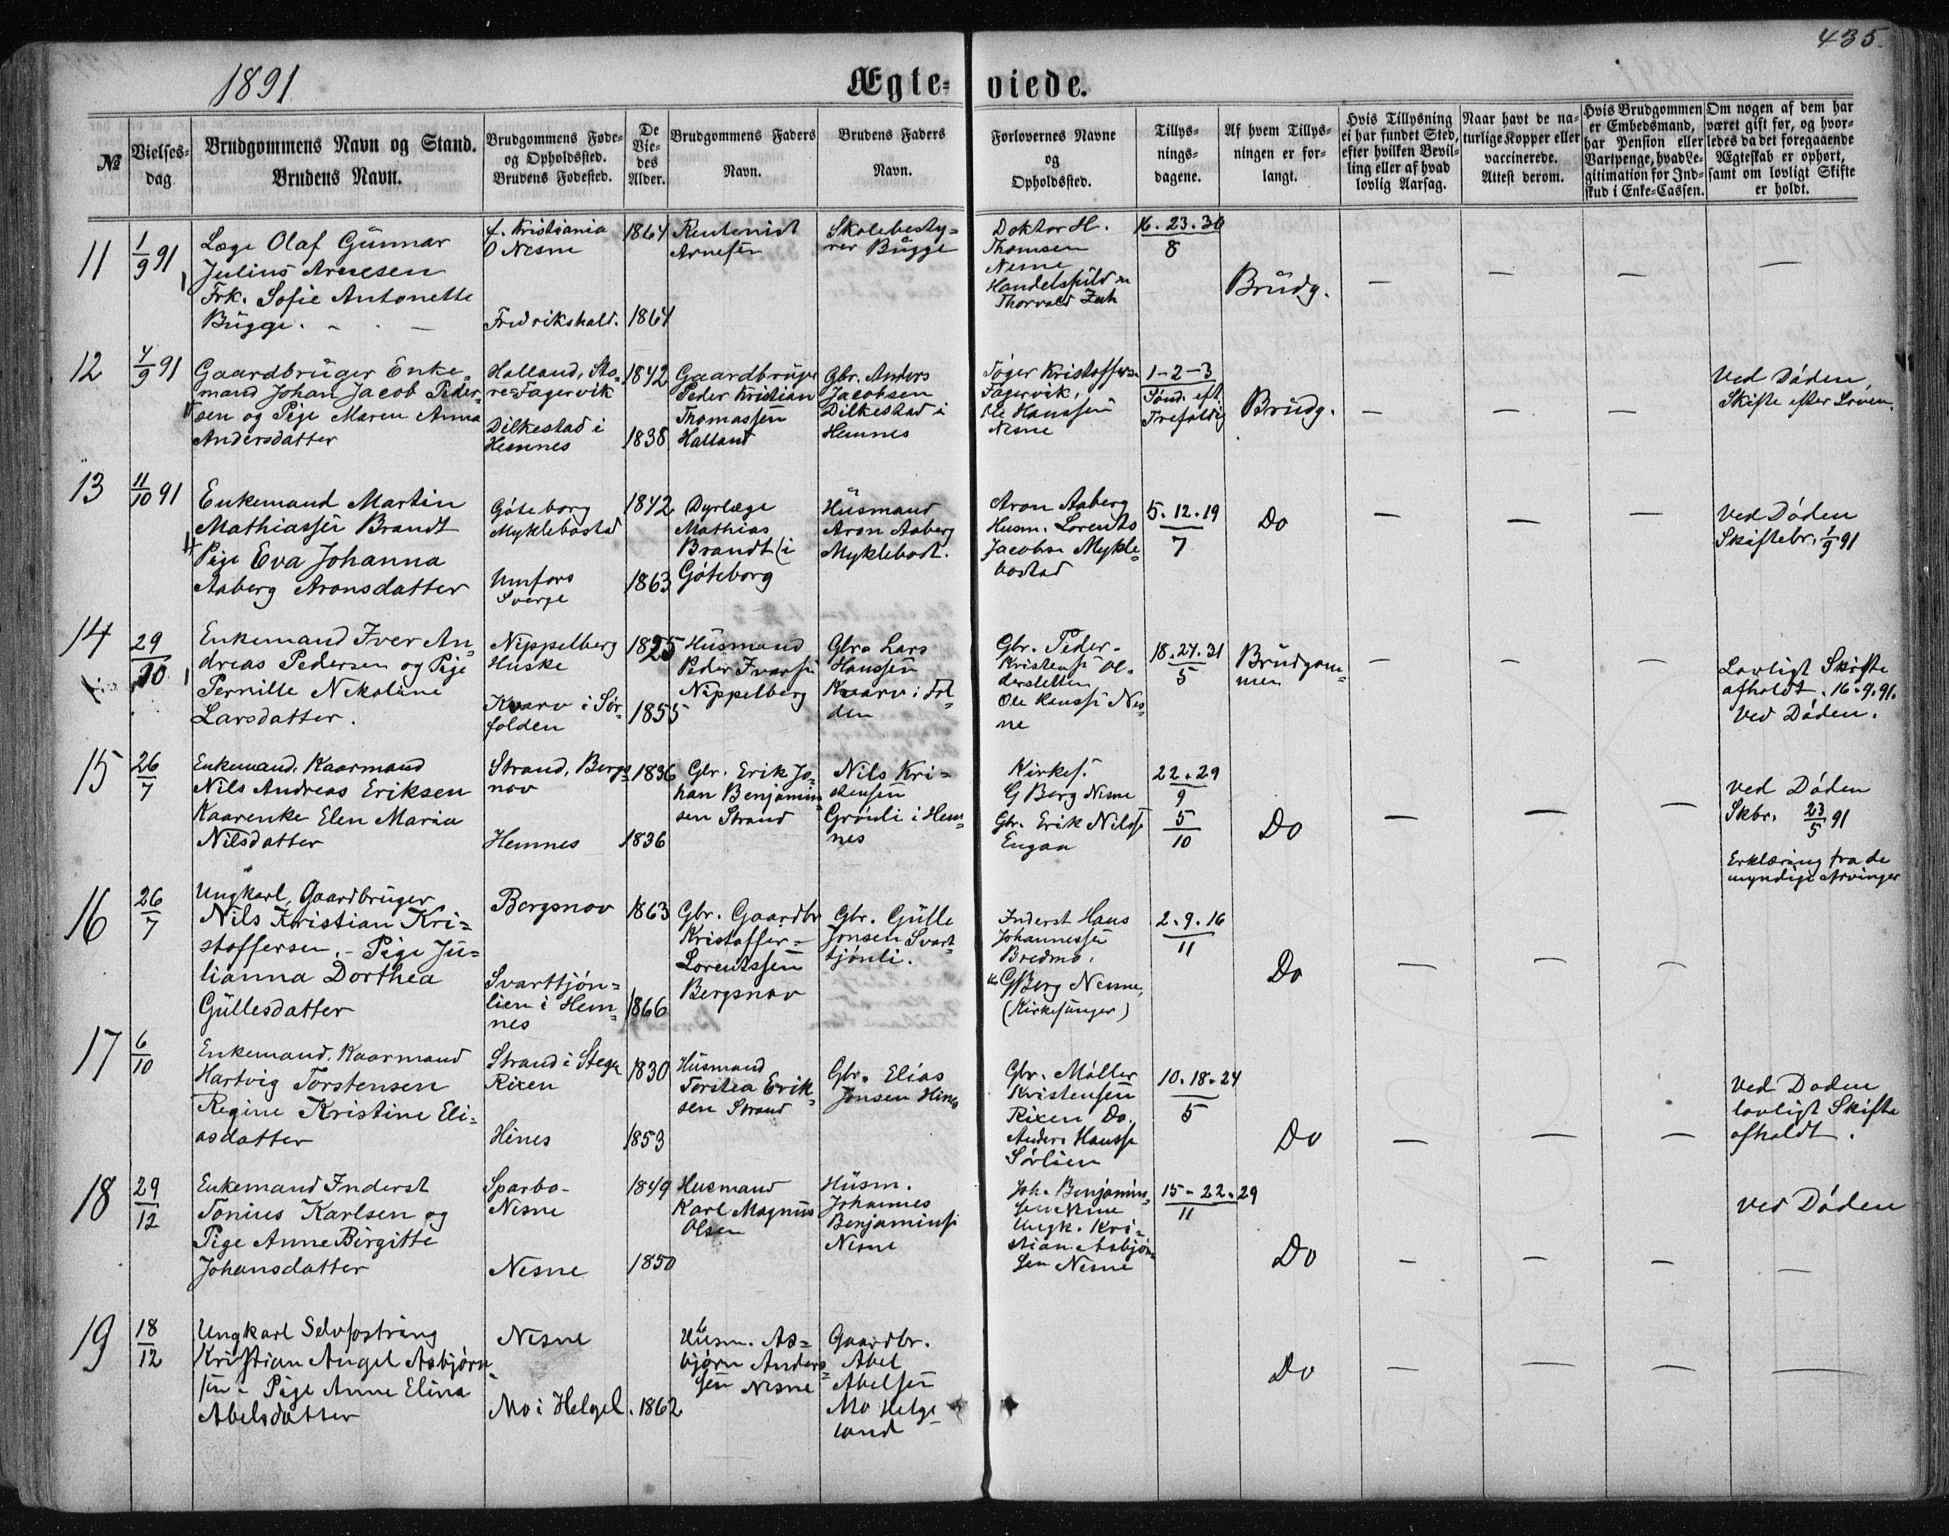 435.
1891
Ægteviede.
№
Vielses-
dag.
Brudgommens Navn og Stand.
Brudens Navn.
Brudgommens Føde-
og Opholdssted.
Brudens Fødested.
De
Vie-
des
Alder.
Brudgommens Faders
Navn.
Brudens Faders
Navn.
Forlovernes Navne
og
Opholdssted.
Tillys-
nings-
dagene.
Af hvem Tillys-
ningen er for-
langt.
Hvis Tillysning
ei har fundet Sted,
efter hvilken Bevil-
ling eller af hvad
lovlig Aarsag.
Naar havt de na-
turlige Kopper eller
vaccinerede.
Attest derom.
Hvis Brudgommen
er Embedsmand,
har Pension eller
Vartpenge, hvad Le-
gitimation for Ind-
skud i Enke-Cassen.
Om nogen af dem har
været gift før, og hvor-
ledes da det foregaaende
Ægteskab er ophørt,
samt om lovligt Skifte
er holdt.
11
1/9 91
Læge Olaf Gunnar
Julius Arnesen
Frk. Sofie Antonette
Bugge.
f. Kristiania
O Nesne
Fredrikshald.
1864
1864
Arnesen
Skolebesty-
rer Bugge
Doktor H.
Thomsen
Nesne
Thorvald Zahl
16. 23. 30
8
Brudg.
— — — —
12
4/9 91
Gaardbruger Enke-
mand Johan Jacob Peder-
sen og Pige Maren Anna
Andersdatter
Halland, Sto-
re-Fagervik
Dilkestad i
Hemnes
1842
1838
Gaardbruger
Peder Kristian
Thomassen
Halland
Gbr. Anders
Jacobsen
Dilkestad i
Hemnes
Tøger Kristoffersen
Fagervik,
Ole Hanssen
Nesne
1-2-3
Sønd. eft.
Trefoldig
Brudg.
— — —
Ved Døden,
Skifte efter Loven.
13
11/10 91
Enkemand Martin
Mathiassen Brandt
Pige Eva Johanna
Aaberg Aronsdatter
Göteborg
Myklebostad
Umfors
Sverge
1842
1863
Dyrlæge
Mathias
Brandt (i
Göteborg
Husmand
Aron Aaberg
Myklebost.
Aron Aaberg
Husm. Lorents
Jacobsn Mykle-
bostad
5. 12. 19
7
Do
— — —
Ved Døden
Skiftebr. 1/9 91
14
29/10
Enkemand Iver An-
dreas Pedersen og Pige
Pernille Nikoline
Larsdatter.
Nippelberg
Huske
Kvarv i Sør-
folden
1825
1855
Husmand
Peder Ivarsen
Nippelberg
Gbr. Lars
Hanssen
Kvarv i Fol-
den
Gbr. Peder
Kristensen Al-
dersletten
Ole Hanssen Nes-
ne
18. 24. 31
5
Brudgom-
men
— — —
Lovligt Skifte
afholdt. 16.9.91.
Ved Døden.
15
26/7
Enkemand, Kaarmand
Nils Andreas Eriksen
Kaarenke Elen Maria
Nilsdatter
Strand, Bergs-
nov
Hemnes
1836
1836
Gbr. Erik Jo-
han Benjamin-
sen Strand
Nils Kri-
stensen
Grønli i Hem-
nes
Kirkes.
G Berg Nesne
Gbr. Erik Nilssen
Engaa
22. 29
9
5
10
Do
— — —
Ved Døden
Skbr. 23/5 91
Erklæring fra de
myndige Arvinger
16
26/7
Ungkarl, Gaardbruger
Nils Kristian Kri-
stoffersen. – Pige Ju-
lianna Dorthea
Güllesdatter
Bergsnov
Svarttjøn-
lien i Hem-
nes
1863
1866
Gbr. Gaardbr
Kristoffer
Lorentssen
Bergsnov
Gbr. Gülle
Jonsen Svart-
tjønli.
Inderst Hans
Johannessen
Bredmo,
G Berg Nesne,
(Kirkesanger)
2. 9. 16
11
Do
— — —
17
6/10
Enkemand, Kaarmand
Hartvig Torstensen
Regine Kristine Eli-
asdatter
Strand i Stegen
Rixen
Hines
1830
1853
Husmand
Torsten Erik-
sen Strand
Gbr. Elias
Jonsen Hines
Gbr. Møller
Kristensen
Rixen Do.
Anders Hanssen
Sørlien
10. 18. 24
5
Do
— — —
Ved Døden
lovligt Skifte
afholdt.
18
29/12
Enkemand Inderst
Tonius Karlsen og
Pige Anne Birgitte
Johansdatter
Sparbo-
Nesne
Nesne
1849
1850
Husmand
Karl Magnus
Olsen
Husm.
Johannes
Benjaminsen
Nesne
Joh. Benjamin-
sen Nesne
Ungk. Kri-
stian Asbjørn-
sen Nesne
15 - 22. 29
11
Do
— — —
Ved Døden
—
19
18/12
Ungkarl Selvfostring
Kristian Angel Asbjørn-
sen – Pige Anne Elina
Abelsdatter
Nesne
Mo i Helgel.
1862
Husm. As-
bjørn Anders-
sen Nesne
Gaardbr.
Abel
Abelsen
Mo Helge-
land
Do
— — — —